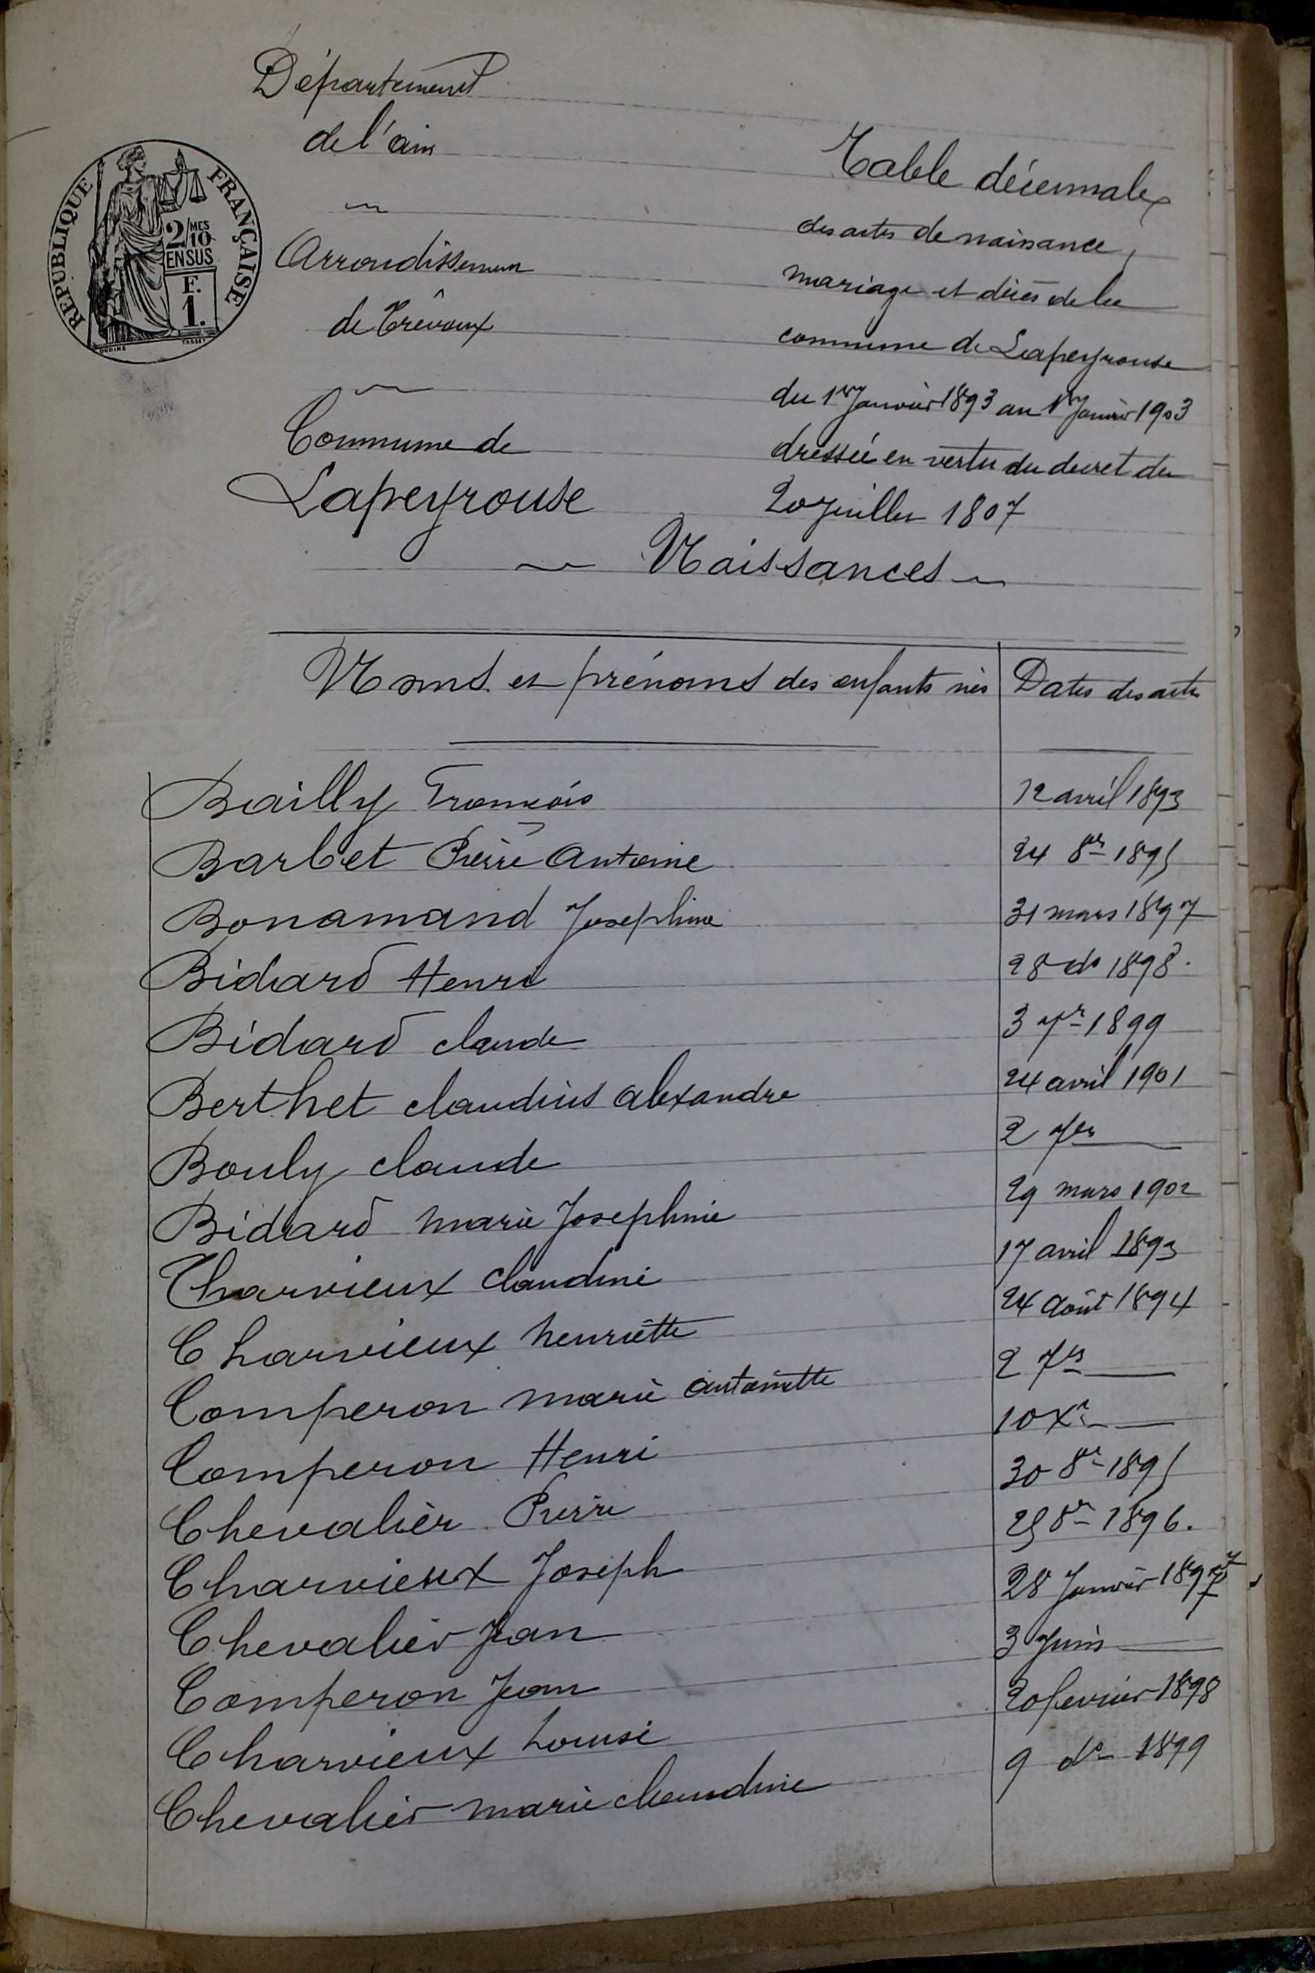 Département
de l'ain
Arrondissement
de Trévoux
Commune de
Lapeyrouse
RÉPUBLIQUE FRANÇAISE
2/10 MES
EN SUS
F.
1.
Table décennale
des actes de naissance,
mariage et décès de la
commune de Lapeyrouse
du 1er Janvier 1893 au 1er Janvier 1903
dressée en vertu du decret du
20 Juillet 1807
Naissances
Noms et prénoms des enfants nés | Dates des actes
Bailly François 12 avril 1893
Barbet Pierre Antoine 24 8re 1895
Bonamand Josephine 31 mars 1897
Bidard Henri 28 do 1898.
Bidard claude 3 7re 1899
Berthet claudius alexandre 24 avril 1901
Bouly claude 2 7re
Bidard marie Josephine 29 mars 1902
Charvieux claudine 17 avril 1893
Charvieux henriette 24 août 1894
Comperon marie antoinette 2 7re
Comperon Henri 10 Xre
Chevalier Pierre 30 8re 1895
Charvieux Joseph 25 8re 1896.
Chevalier Jean 28 Janvier 1897
Comperon Jean 3 Juin
Charvieux Louise 20 fevrier 1898
Chevalier marie claudine 9 do 1899